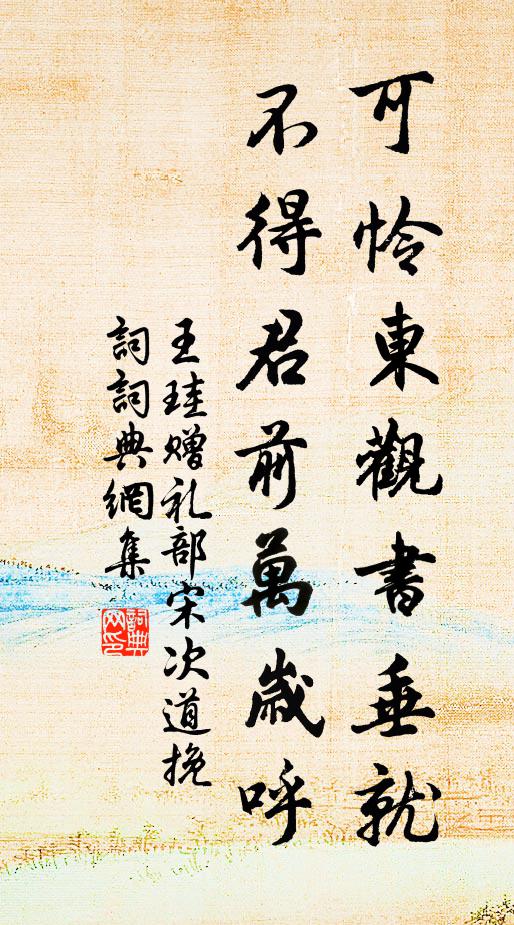 可怜東觀書垂就
不得君前萬歲呼
王珪赠礼部宋次道挽
詞詞典網集
詞典网印